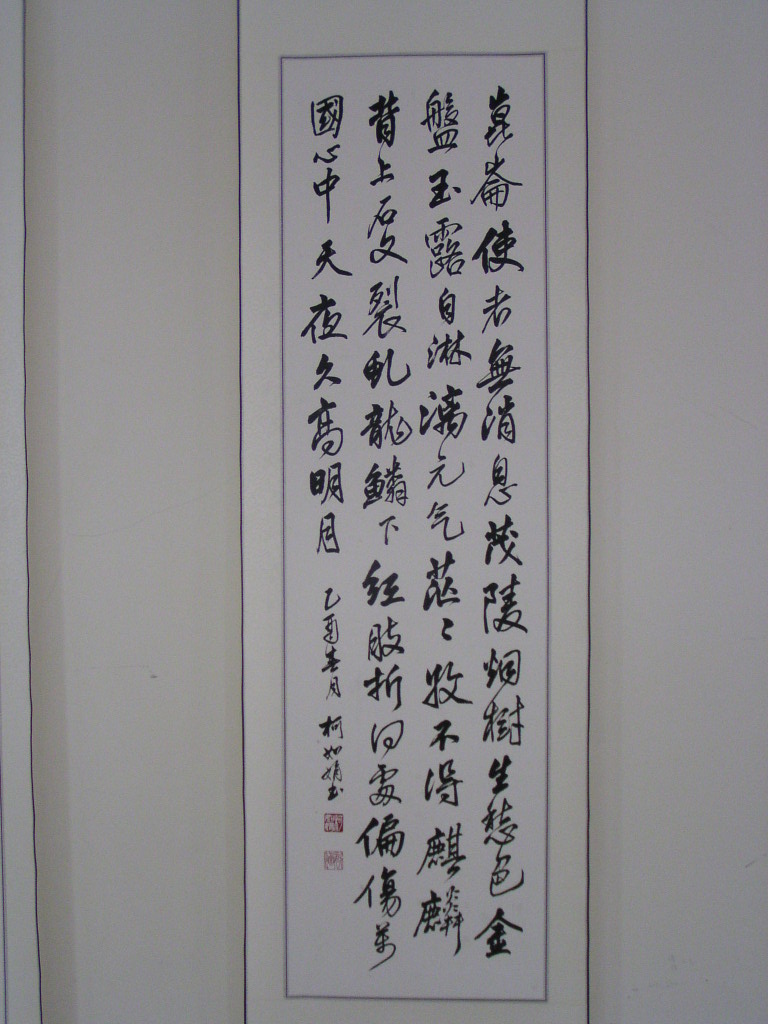 崑崙使者無消息茂陵烟樹生愁色金
盤玉露自淋漓元气茫々收不得麒麟
背上石文裂虬龍鱗下红肢折何處偏傷萬
國心中天夜久高明月
乙酉春月柯如娟书